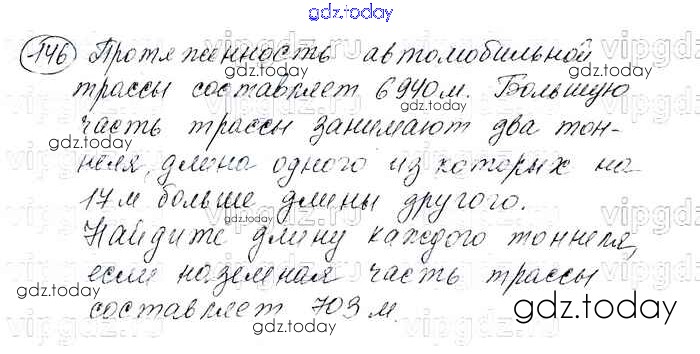 gdz.today
146 Протяженность автомобильной
трассы составляет 6940м. Большую
часть трассы занимают два тон-
неля, длина одного из которых на
17м больше длины другого.
Найдите длину каждого тоннеля,
если наземная часть трассы
составляет 703м.
gdz.today
gdz.today
gdz.today
gdz.today
gdz.today
gdz.today
gdz.today
gdz.today